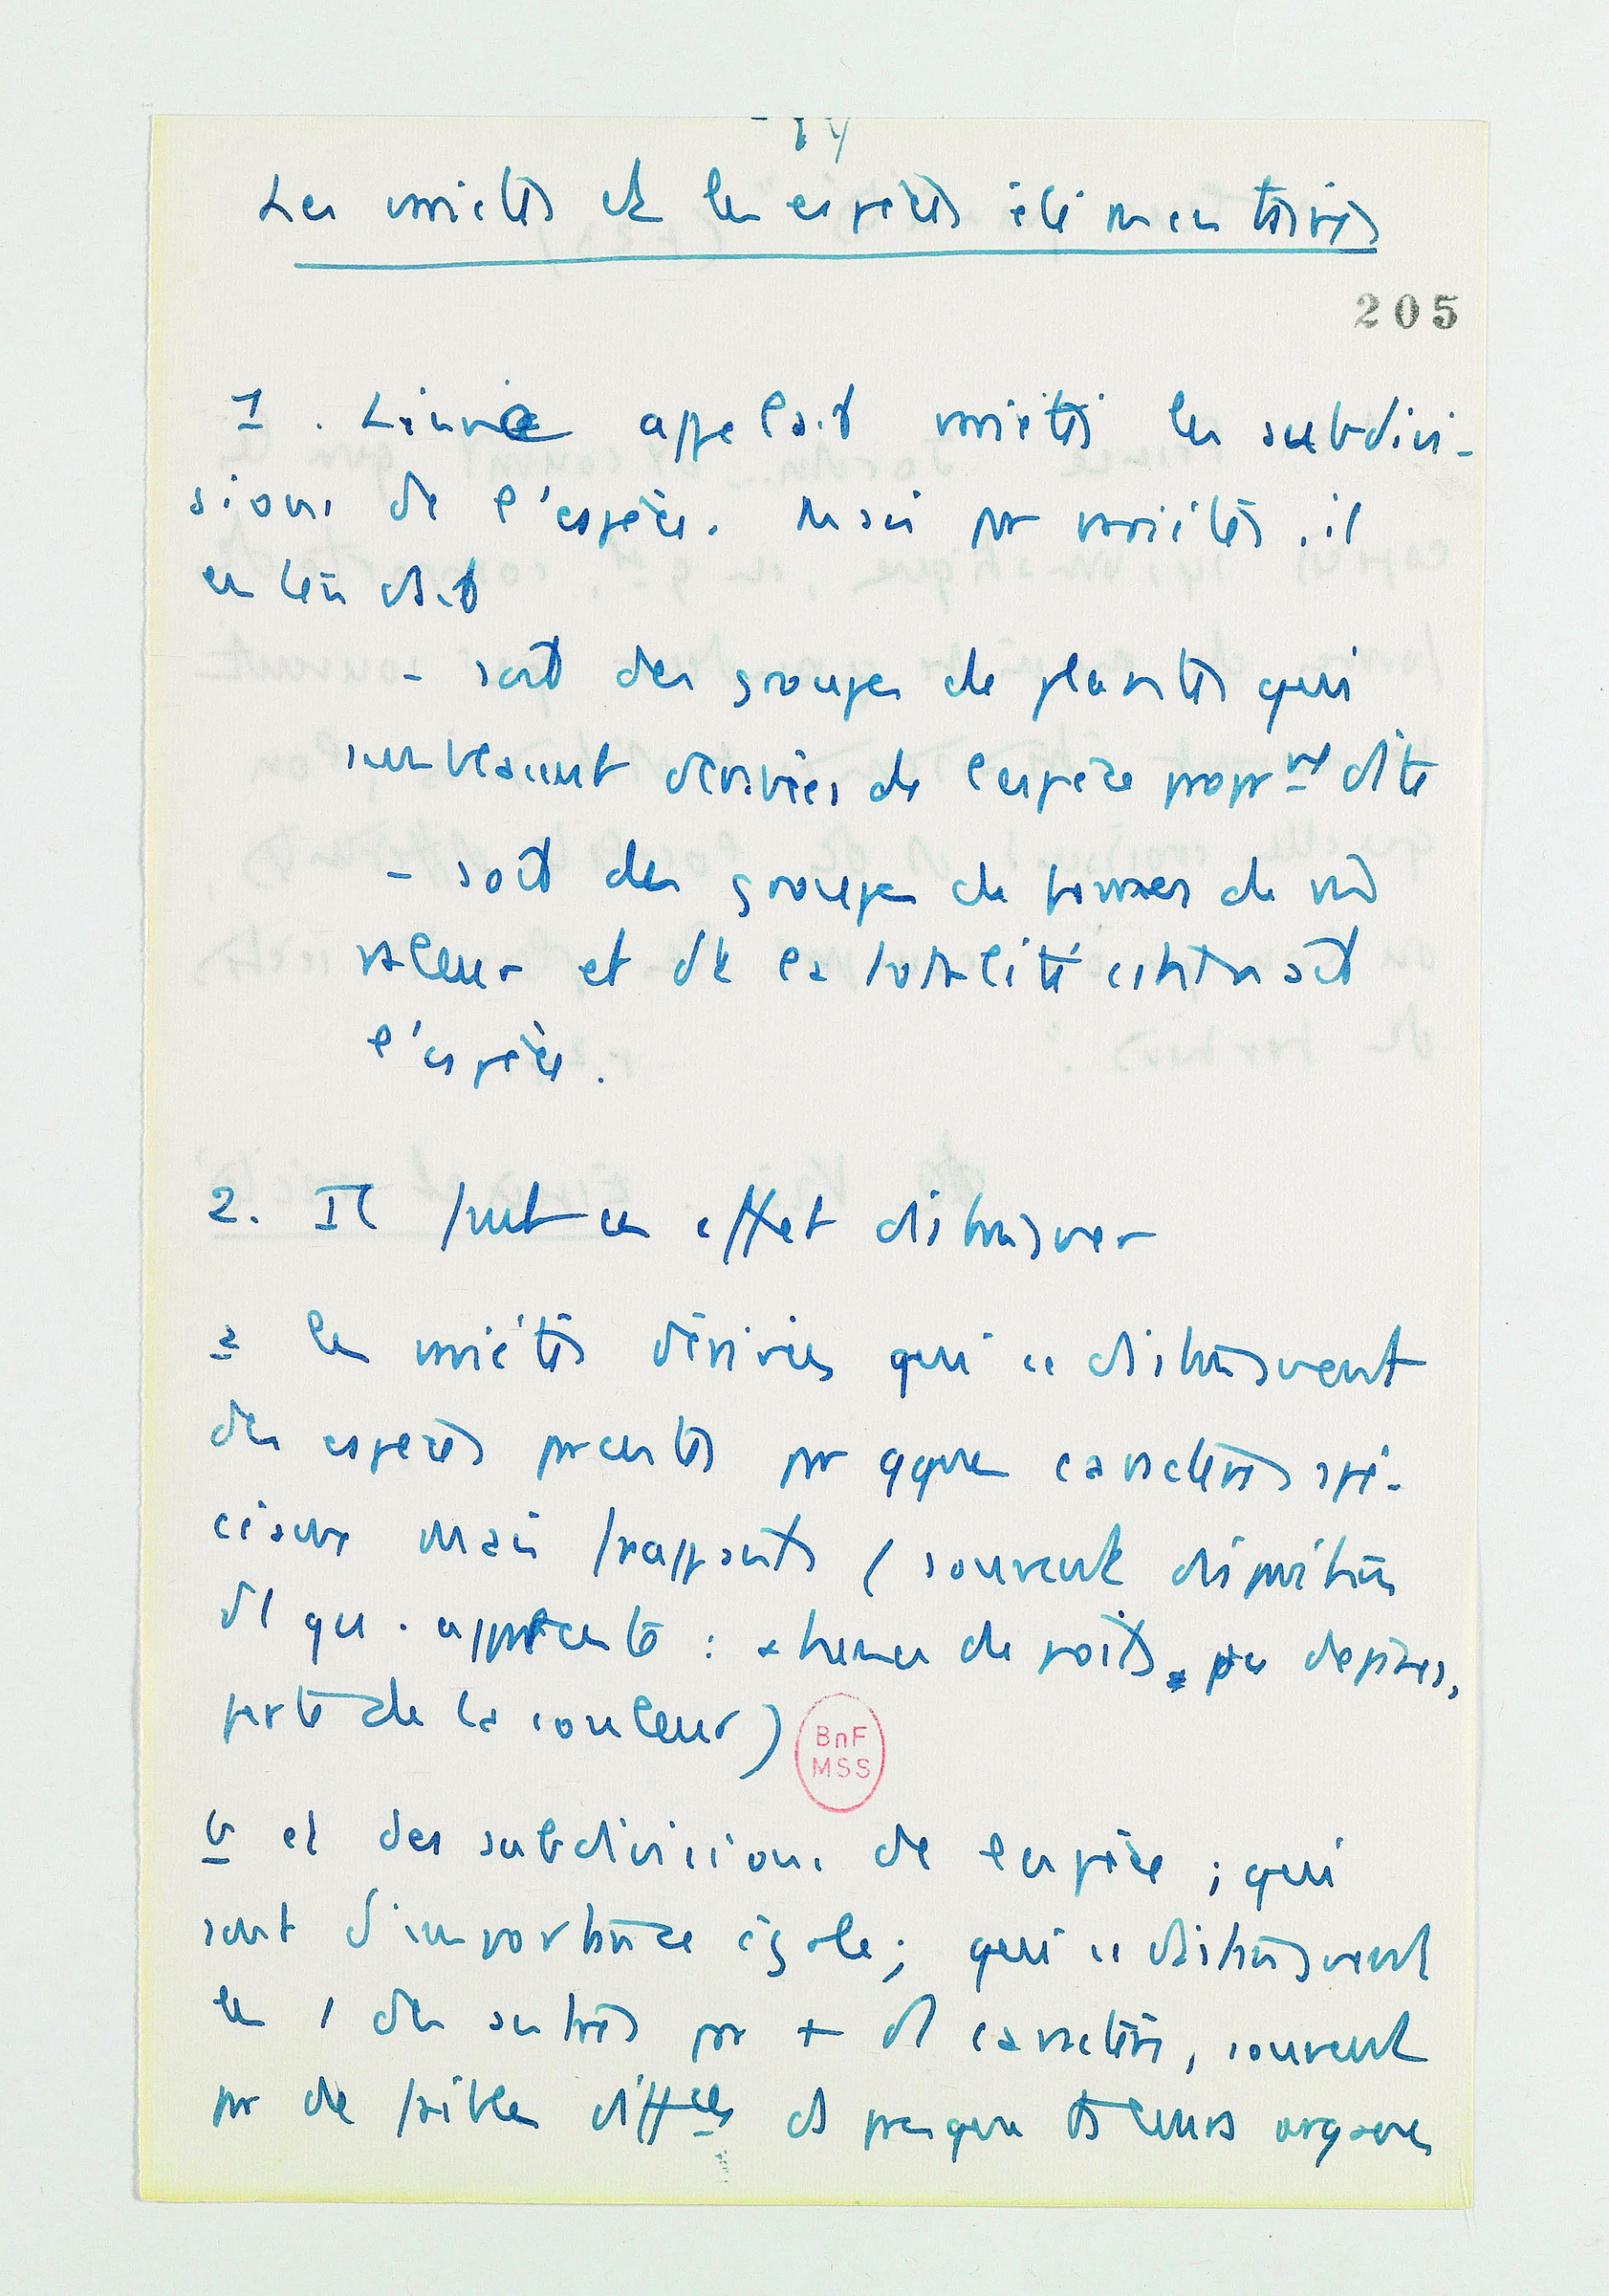 Les variétés et les espèces élémentaires
205
1. Linné appelait variétés les subdivi-
sions de l'espèce. Mais par variétés, il
entendait
- soit des groupes de plantes qui
semblaient dérivées de l'espèce proprmt dite
- soit des groupes de formes de m̂
valeur et dt la totalité constituait
l'espèce.
2. Il faut en effet distinguer
a les variétés dérivées qui se distinguent
des espèces parentes par qques caractères spé-
ciaux mais frappants (souvent disparition
d'1 qu. apparente : absence de poils, ou d'épines,
perte de la couleur)
BnF
MSS
b et des subdivisions de l'espèce ; qui
sont d'importance égale ; qui se distinguent
les 1 des autres par + d caractères, souvent
par de faibles diffces ds presque ts leurs organes